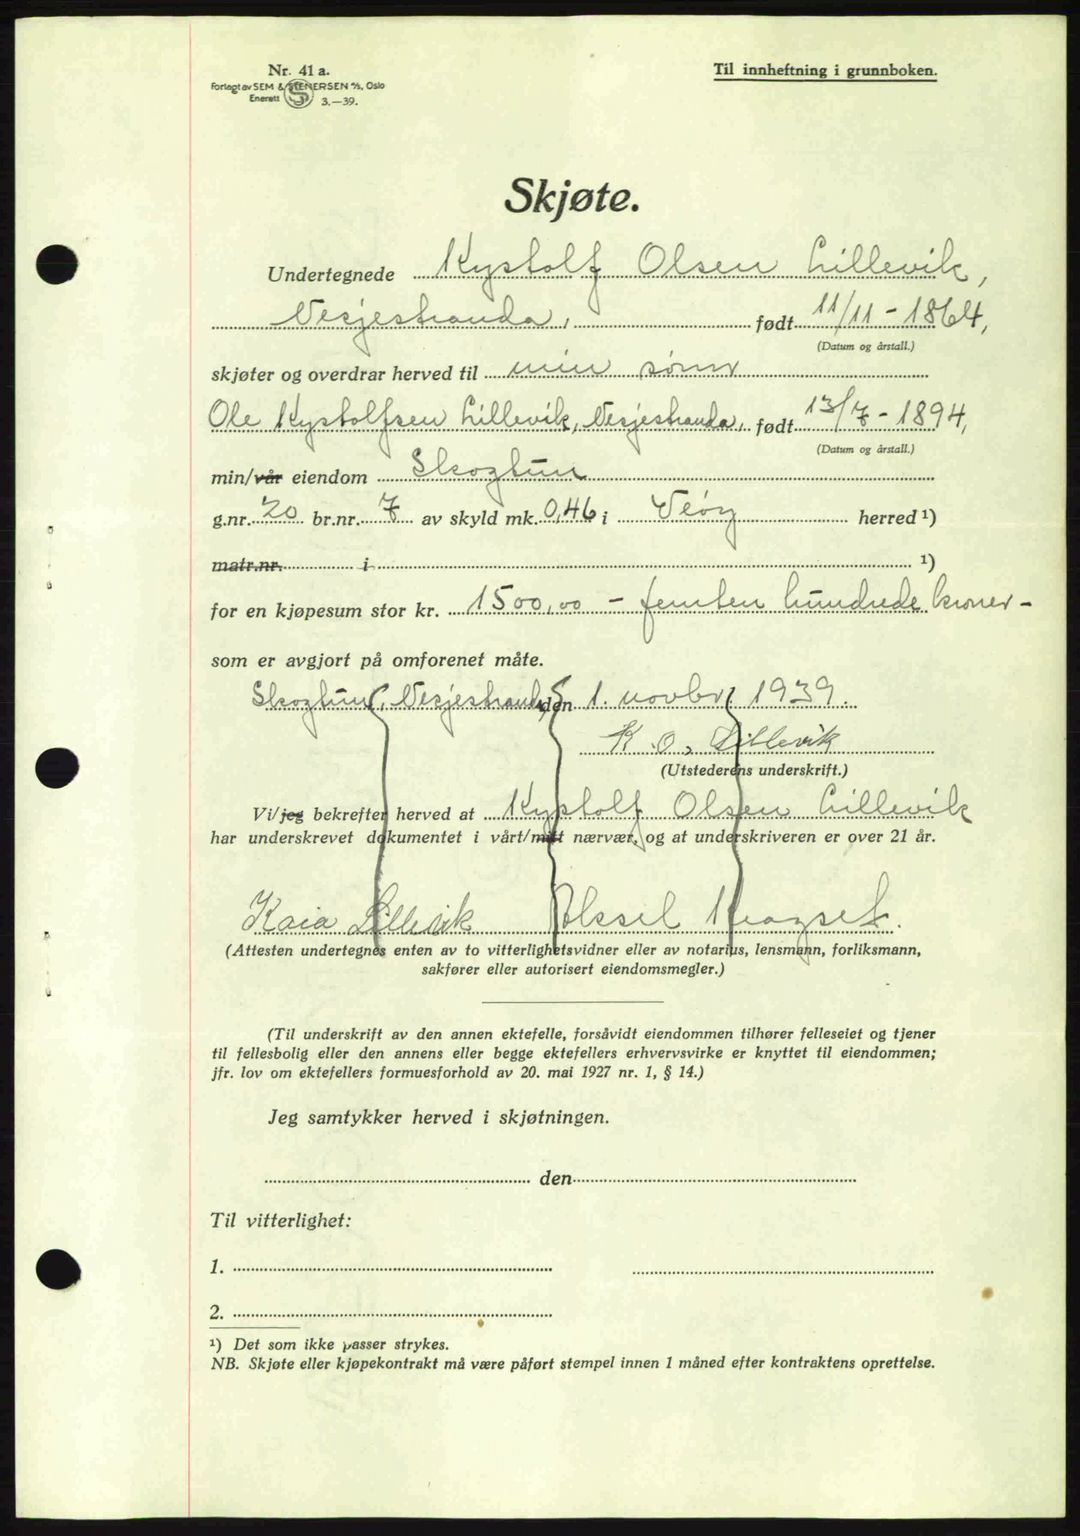 Nr. 41 a.
Forlagt av SEM & STENERSEN A/S, Oslo
Enerett S 3.—39.
Til innheftning i grunnboken.
Skjøte.
Undertegnede Kystolf Olsen Lillevik,
Nesjestranda, født 11/11 - 1864,
(Datum og årstall.)
skjøter og overdrar herved til min sønn
Ole Kystolfsen Lillevik, Nesjestranda, født 13/7 - 1894,
(Datum og årstall.)
min/vår eiendom Skogtun
g.nr. 20 br.nr. 7 av skyld mk. 0,46 i Veøy herred ¹)
matr.nr. i ¹)
for en kjøpesum stor kr. 1500,00 - femten hundrede kroner -
som er avgjort på omforenet måte.
Skogtun, Nesjestranda den 1. novbr. 1939.
K. O. Lillevik
(Utstederens underskrift.)
Vi/jeg bekrefter herved at Kystolf Olsen Lillevik
har underskrevet dokumentet i vårt/mitt nærvær, og at underskriveren er over 21 år.
Kaia Lillevik Aksel Kragset.
(Attesten undertegnes enten av to vitterlighetsvidner eller av notarius, lensmann, forliksmann,
sakfører eller autorisert eiendomsmegler.)
(Til underskrift av den annen ektefelle, forsåvidt eiendommen tilhører felleseiet og tjener
til fellesbolig eller den annens eller begge ektefellers erhvervsvirke er knyttet til eiendommen;
jfr. lov om ektefellers formuesforhold av 20. mai 1927 nr. 1, § 14.)
Jeg samtykker herved i skjøtningen.
den
Til vitterlighet:
1.
2.
¹) Det som ikke passer strykes.
NB. Skjøte eller kjøpekontrakt må være påført stempel innen 1 måned efter kontraktens oprettelse.